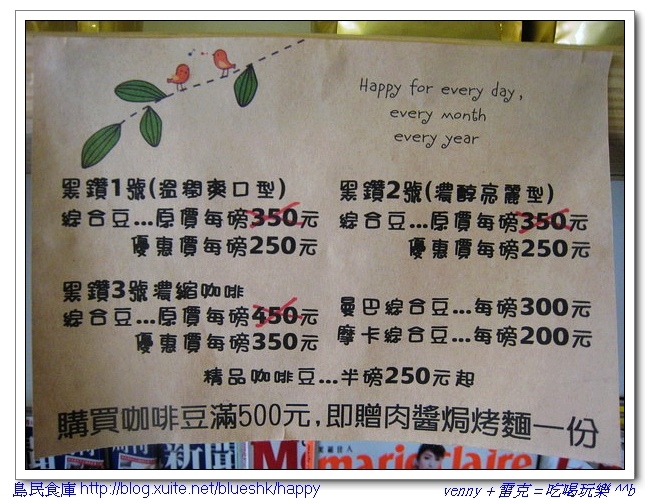 Happy for every day,
every month
every year
黑鑽1號(溫潤爽口型)
綜合豆...原價每磅350元
優惠價每磅250元
黑鑽2號(濃醇亮麗型)
綜合豆...原價每磅350元
優惠價每磅250元
黑鑽3號濃縮咖啡
綜合豆...原價每磅450元
優惠價每磅350元
曼巴綜合豆...每磅300元
摩卡綜合豆...每磅200元
精品咖啡豆...半磅250元起
購買咖啡豆滿500元,即贈肉醬焗烤麵一份
新聞
美麗佳人
marie claire
島民食庫 http://blog.xuite.net/blueshk/happy
venny + 雷克 = 吃喝玩樂 ^^b